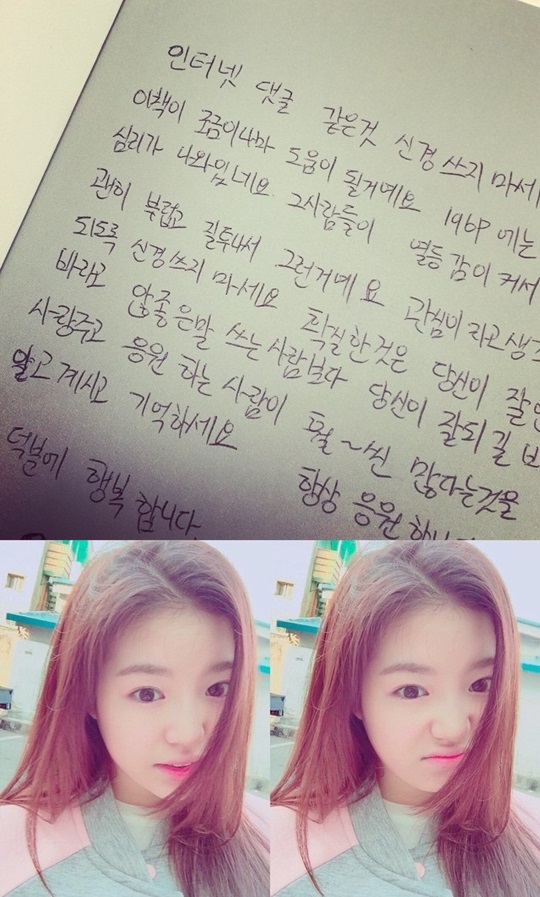 인터넷 댓글 같은것 신경 쓰지 마세
이책이 조금이나마 도움이 될거예요 196P 에는
심리가 나와있네요. 그사람들이 열등감이 커서
괜히 부럽고 질투나서 그런거예요 관심이라고 생각
되도록 신경쓰지 마세요 확실한것은 당신이 잘안
바라고 않좋은말 쓰는사람보다 당신이 잘되길 바
사랑주고 응원 하는 사람이 훨~씬 많다는것을
알고계시고 기억하세요
덕분에 행복 합니다. 항상 응원 합니다